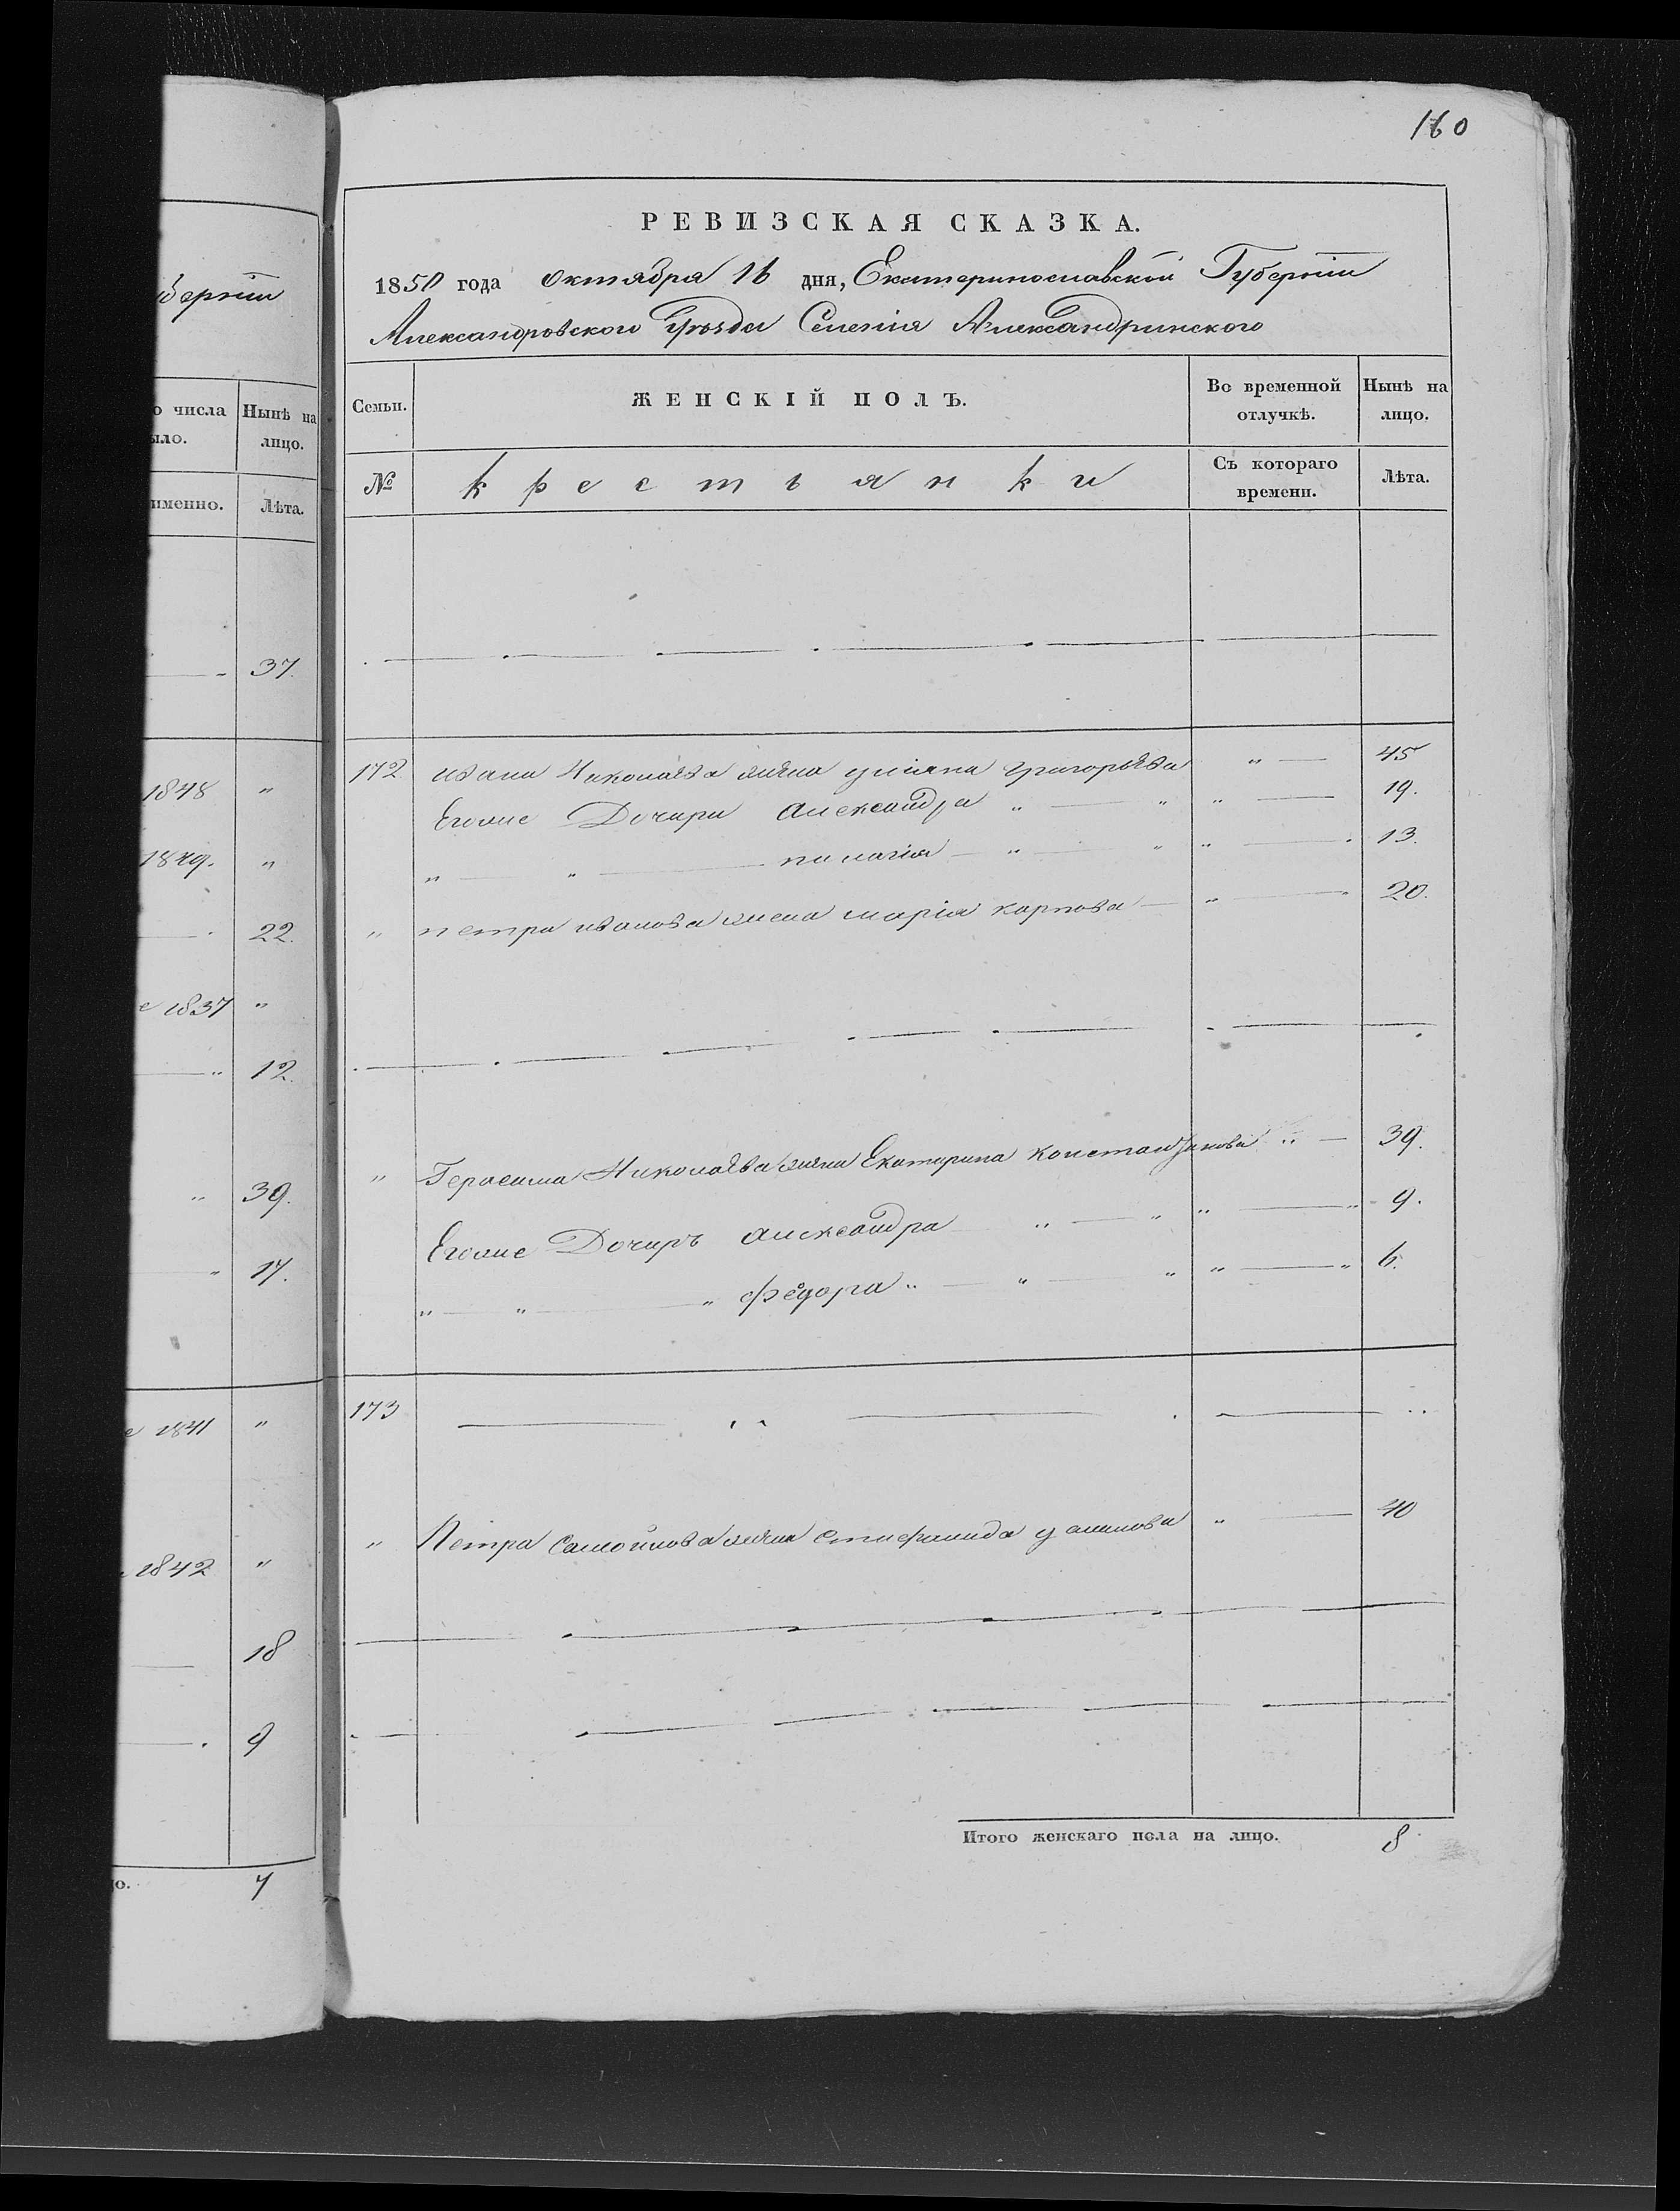 160
РЕВИЗСКАЯ СКАЗКА.
1850 года октября 16 дня, Екатеринославской Губернiи
Александровского Уѣзда Селенiя Александринского
Семьи. ЖЕНСКІЙ ПОЛЪ. Во временной отлучкѣ. Нынѣ на лицо.
№ крестьянки Съ котораго времени. Лѣта.
172 ивана Николаева жена улiяна григорьева " — 45
Егоже Дочери александра " — " " — 19.
" — " — пилагiя — " — " " — 13.
" петра иванова жена марiя карпова — " — 20.
" Герасима Николаева жена Екатерина константинова " — 39.
Егоже Дочерь александра " — " " — " 9.
" — " — " федора " — " — " " — " 6.
173 — " — . — ..
" Петра Самойлова жена стефанида — " — 40
Итого женскаго пола на лицо. 8
берніи
о числа Нынѣ на
ыло. лицо.
именно. Лѣта.
— 37.
1848 "
1849. "
— 22.
е 1837 "
— " 12.
" 39.
" 17.
е 1841 "
1842 "
— 18
— . 9
о. 7